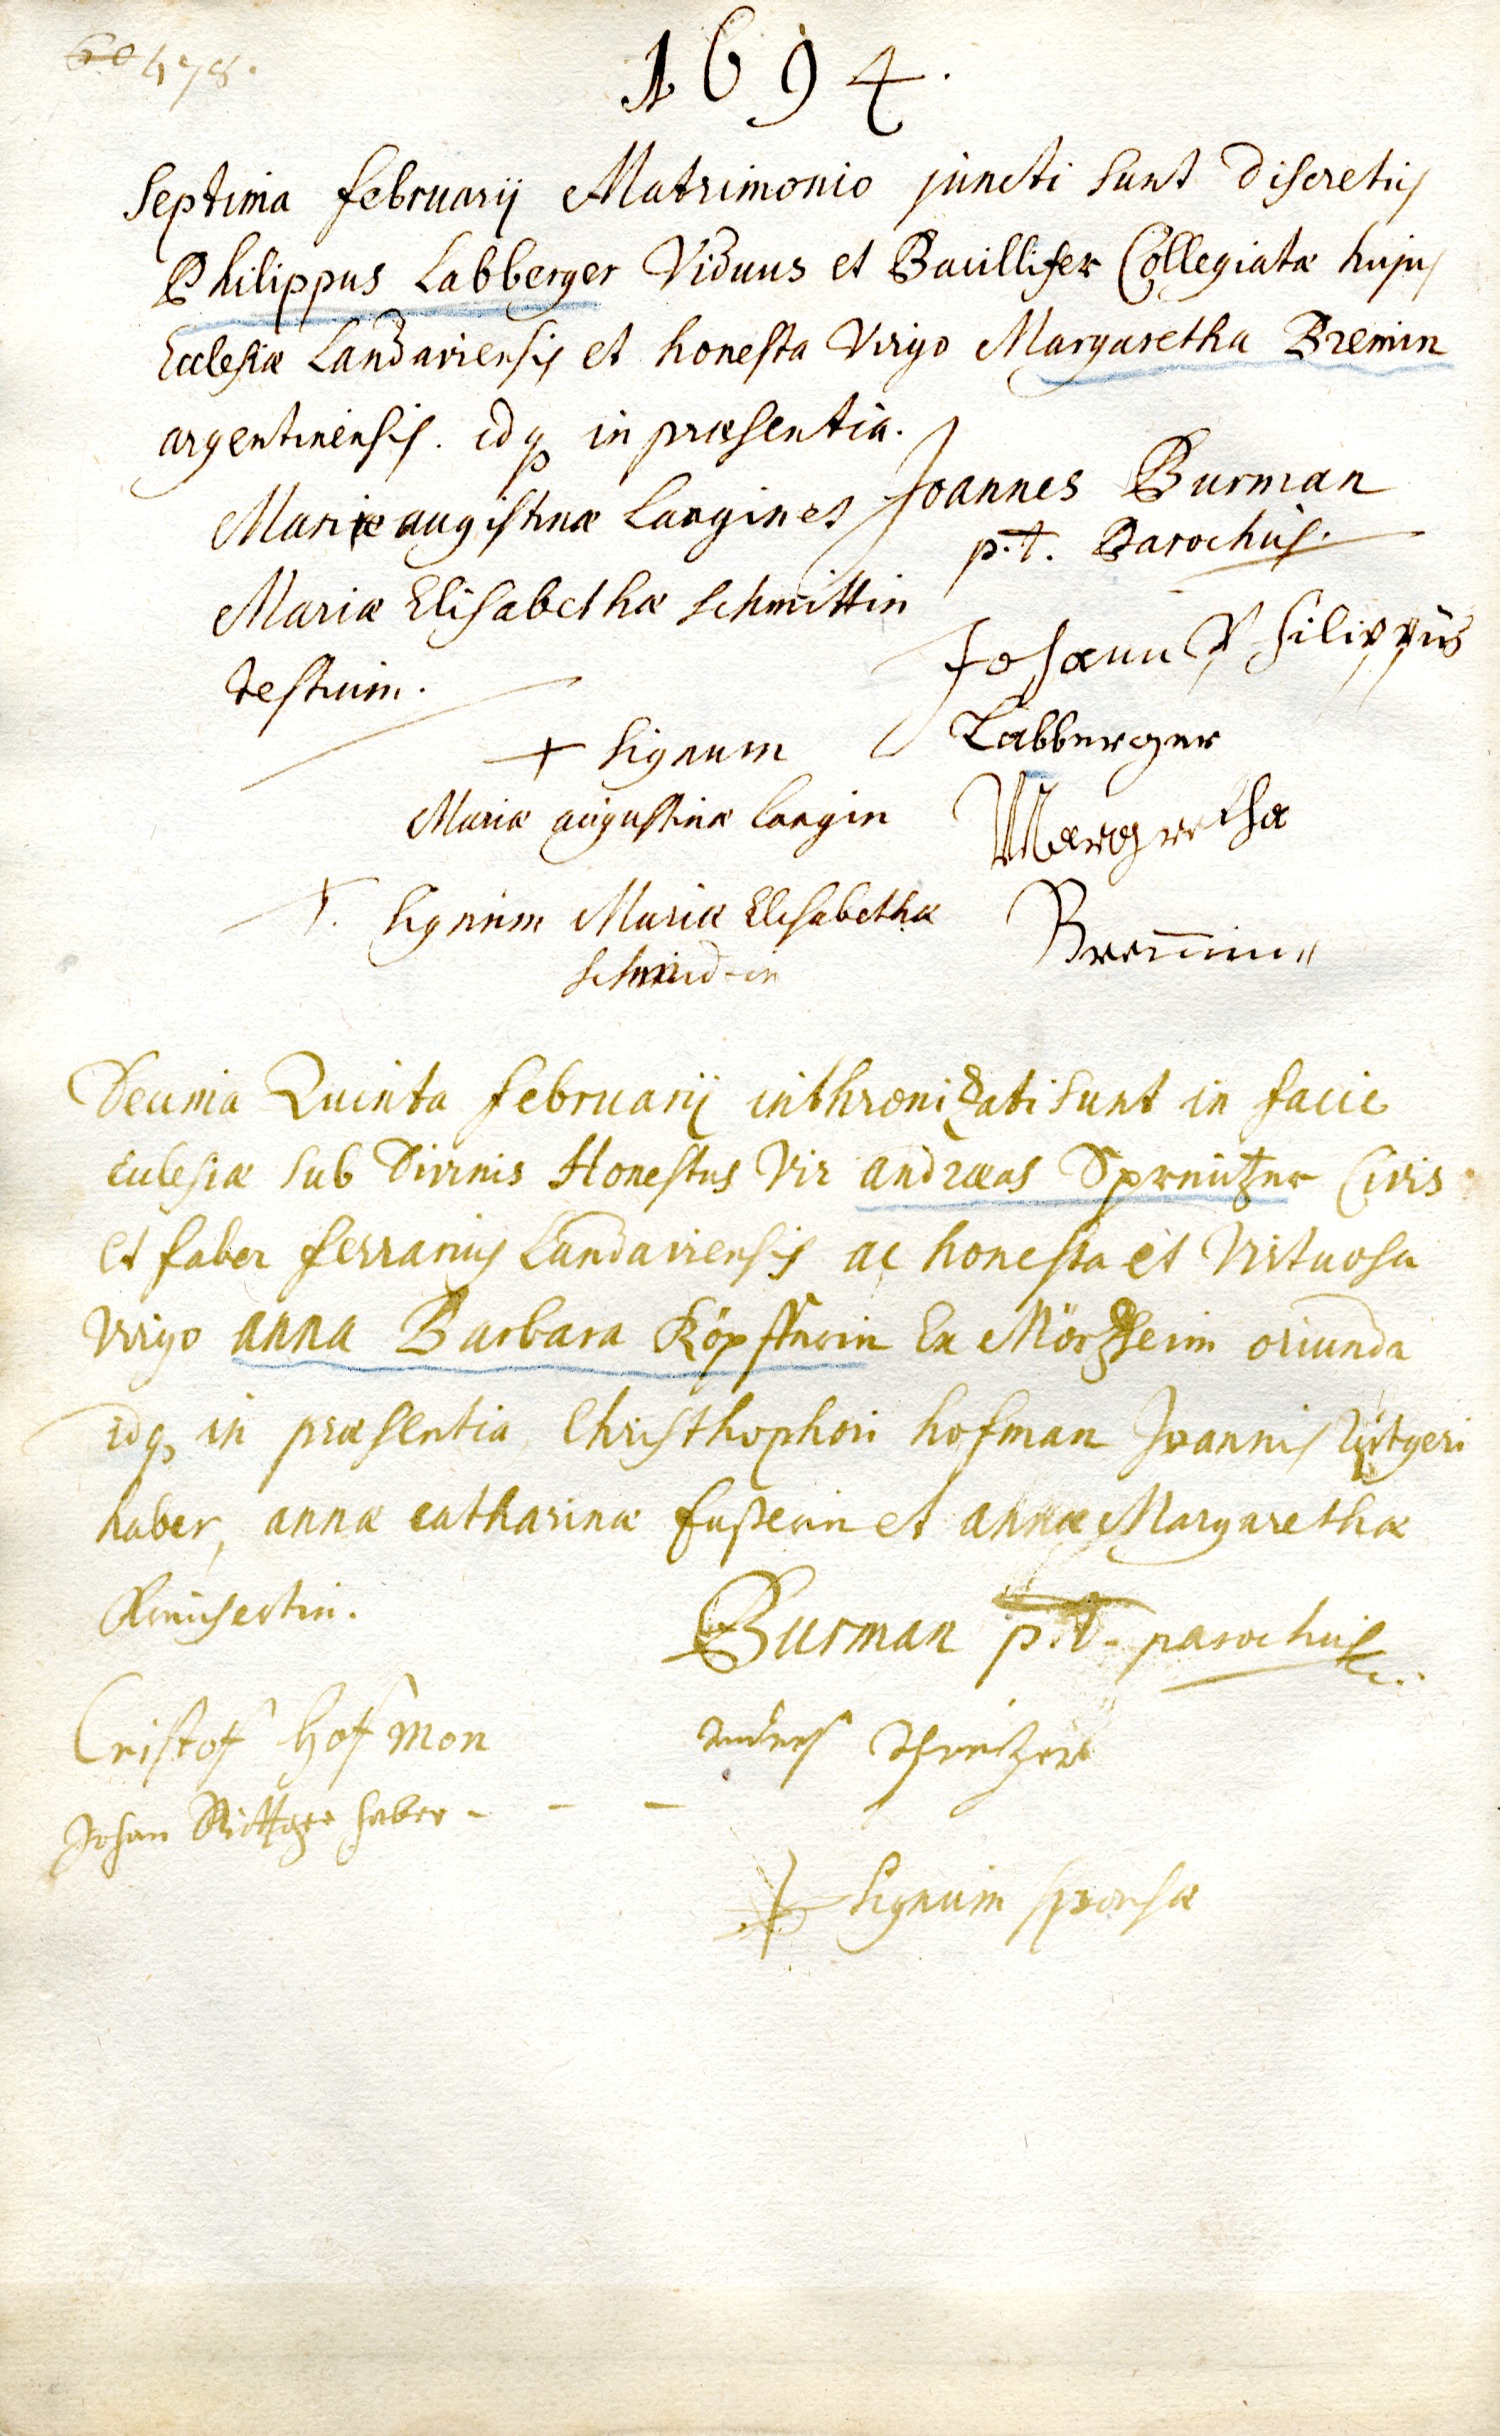 478.
1694.
Septima februarij Matrimonio juncti sunt discretus
Philippus Labberger Viduus et Bacillifer Collegiatæ hujus
Ecclesiæ Landaviensis et honesta Virgo Margaretha Bremin
argentinensis. idq in præsentia.
Joannes Burman
p.t. Parochus.
Mariæ augustinæ Langines
Mariæ Elisabethæ Schmittin
testium.
Johann Philippus
Labberger
+ signum
Mariæ augustinæ Langin
Margretha
Bremin
+. signum Mariæ Elisabethæ
Schmidtin
Decima Quinta februarij inthronizati sunt in facie
Ecclesiæ sub Divinis Honestus Vir andræas Spreutzer Civis
et faber ferrarius Landaviensis ac honesta et Virtuosa
Virgo anna Barbara Köpfferin Ex Mörzheim oriunda
idq in præsentia Christhophori hofman Joannis Rütgeri
haber, annæ catharinæ fusserin et annæ Margarethæ
Burman p.t. parochus
Cristof Hofmon
Johan Rittger haber - - -
signum sponsæ